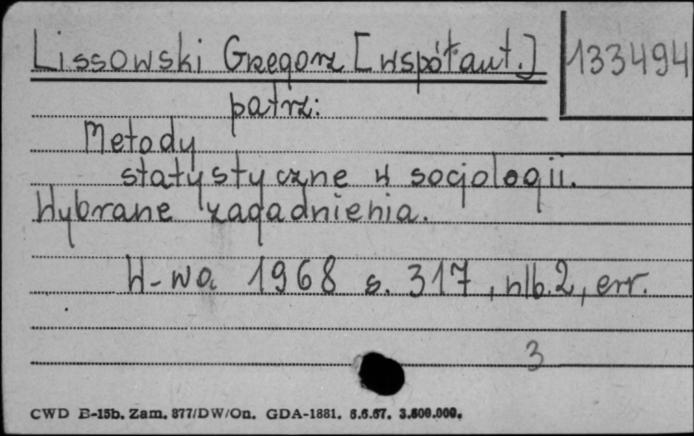 Lissowski Grzegorz [współaut.] 133494
patrz:
Metody
statystyczne w socjologii.
Wybrane zagadnienia.
W-wa 1968 s. 317, nlb. 2, err.
3
CWD B-15b. Zam. 877/DW/On. GDA-1881. 6.6.67. 3.500.000.